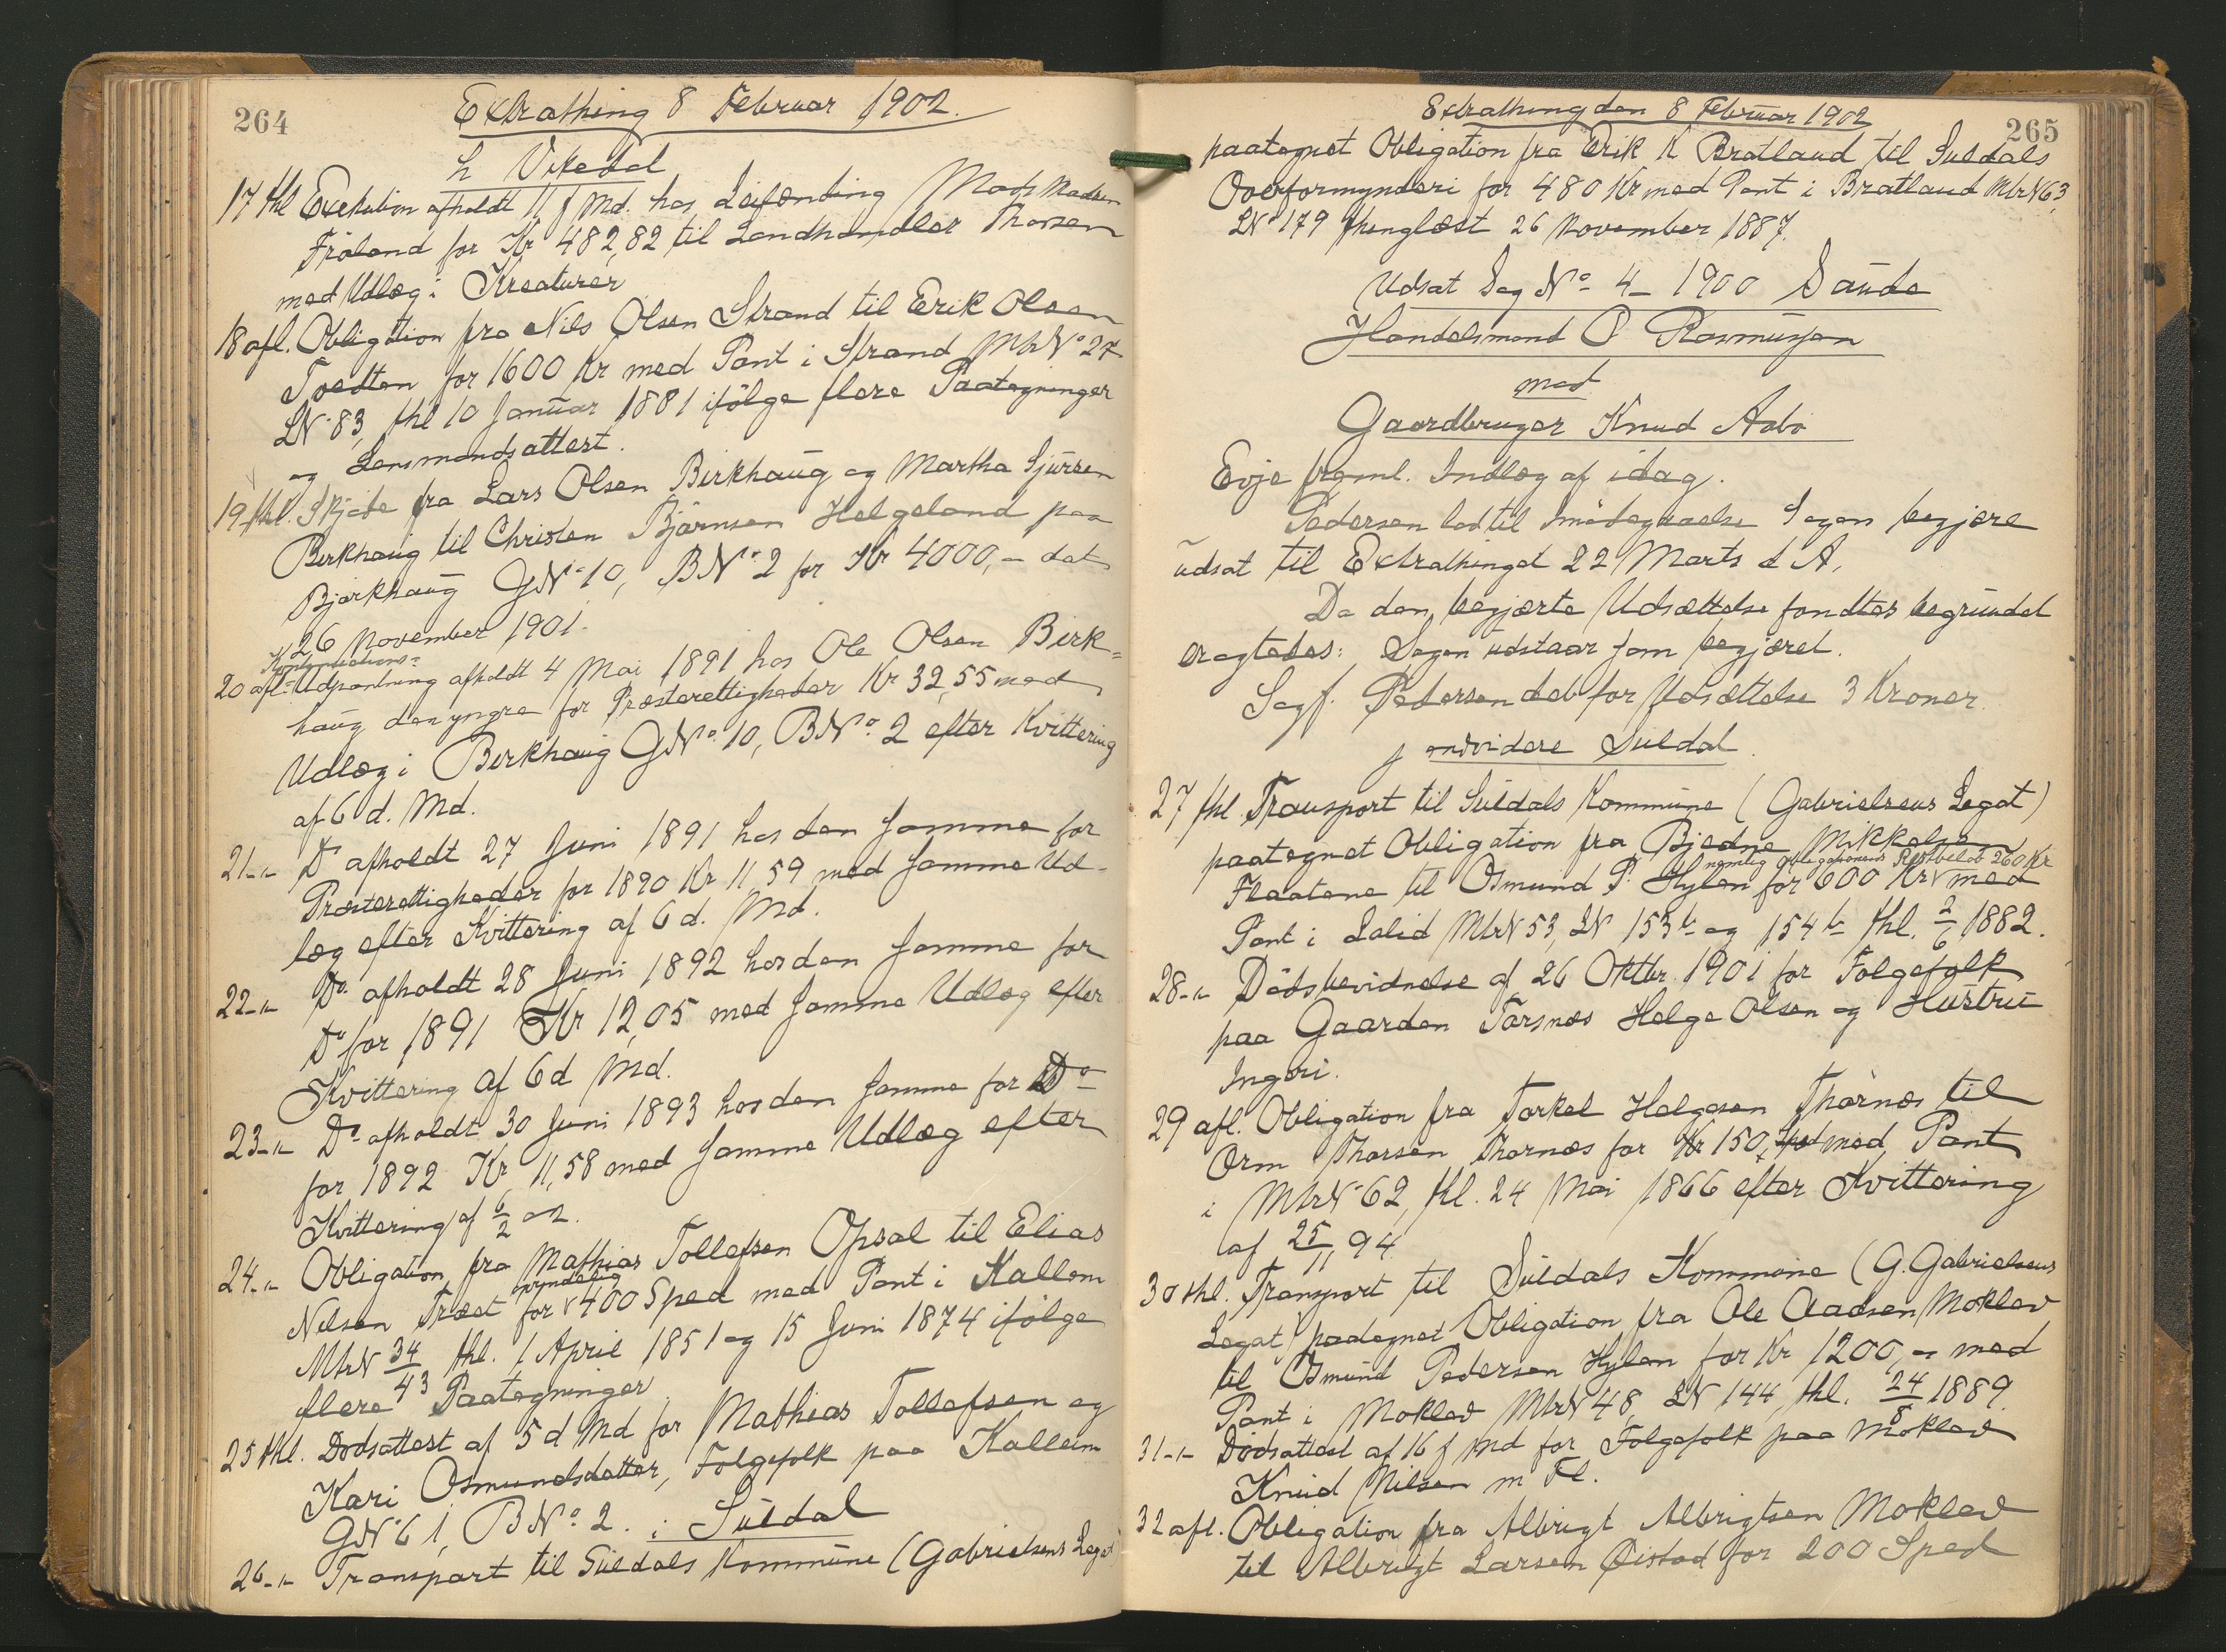 264
Extrathing 8 Februar 1902.
h Vikedal
17 thl Exekution afholdt 11 f Md. hos Leilænding Mads Madsen
Fröland for Kr 482,82 til Landhandler Thorsen
med Udlæg i Kreaturer
18 afl. Obligation fra Nils Olsen Strand til Erik Olsen
Tvedten for 1600 Kr med Pant i Strand MtrNo 27
LN 83, thl 10 Januar 1881 ifölge flere Paategninger
og Lensmandsattest.
19 thl. Skjöde fra Lars Olsen Birkhaug og Martha Sjursen
Birkhaug til Christen Bjørnsen Helgeland paa
Bjerkhaug GNo 10, BNo 2 for Kr 4000,- dat
26 November 1901.
Konfirmations-
20 afl. Udpantning afholdt 4 Mai 1891 hos Ole Olsen Birk=
haug den yngre for Præsterettigheder Kr 32,55 med
Udlæg i Birkhaug GNo 10, BNo 2 efter Kvittering
af 6 d. Md.
21 -"- Do afholdt 27 Juni 1891 hos den samme for
Præsterettigheder for 1890 Kr 11 59 med samme Ud-
læg efter Kvittering af 6 d. Md.
22 -"- Do afholdt 28 Juni 1892 hos den samme for
Do for 1891 Kr 12,05 med samme Udlæg efter
Kvittering af 6 d Md.
23 -"- Do afholdt 30 Juni 1893 hos den samme for Do
for 1892 Kr 11,58 med samme Udlæg efter
Kvittering af 6/2 02.
24 -"- Obligation fra Mathias Tollefsen Opsal til Elias
oprindelig
Nilsen Træet for 400 Spd med Pant i Kallem
MtrN 34/43 thl. 1 April 1851 og 15 Juni 1874 ifölge
flere Paategninger
25 thl. Dödsattest af 5 d Md for Mathias Tollefsen og
Kari Osmundsdatter, Folgefolk paa Kalleim
GNo 61, BNo 2.
i Suldal
26 -"- Transport til Suldals Kommune (Gabrielsens Legat)
265
Extrathing den 8 Februar 1902
paategnet Obligation fra Erik K Bratland til Suldals
Overformynderi for 480 Kr med Pant i Bratland MtrN 63
LNo 179 thinglæst 26 November 1887.
Udsat Sag No 4 - 1900 Saude
Handelsmand O Rasmussen
mod
Gaardbruger Knud Aabö
Evje freml. Indlæg af idag.
Pedersen lod til Imödegaaelse Sagen begjære
udsat til Extrathinget 22 Marts d A.
Da den begjærte Udsættelse fandtes begrundet
eragtedes: Sagen udstaar som begjæret.
Sagf. Pedersen deb for Udsættelse 3 Kroner.
j endvidere Suldal
27 thl Transport til Suldals Kommune (Gabrielsens Legat)
paategnet Obligation fra Bjedne Mikkelsen
nemlig Obligationens Restbelöb 260 Kr
Flaatene til Osmund P. Hylen for 600 Kr med
Pant i Lalid MtrN 53, LN 153b og 154b thl. 2/6 1882.
28 -"- Dödsbevidnelse af 26 Oktbr 1901 for Folgefolk
paa Gaarden Tarsnæs Helge Olsen og Hustru
Ingeri.
29 afl. Obligation fra Torkel Helgesen Thørnæs til
Orm Thorsen Thornæs for Kr 150, Spd med Pant
i MtrNo 62, thl. 24 Mai 1866 efter Kvittering
af 25/11 94.
30 thl. Transport til Suldals Kommune (G. Gabrielsens
Legat) paategnet Obligation fra Ole Aadsen Moklev
til Osmund Pedersen Hylen for Kr 1200,- med
Pant i Moklev MtrN 48, LN 144, thl. 24/8 1889.
31 -"- Dödsattest af 16 f Md for Folgefolk paa Moklev
Knud Nilsen m Fl.
32 afl. Obligation fra Albrigt Albrigtsen Moklev
til Albrigt Larsen Øistad for 200 Spd